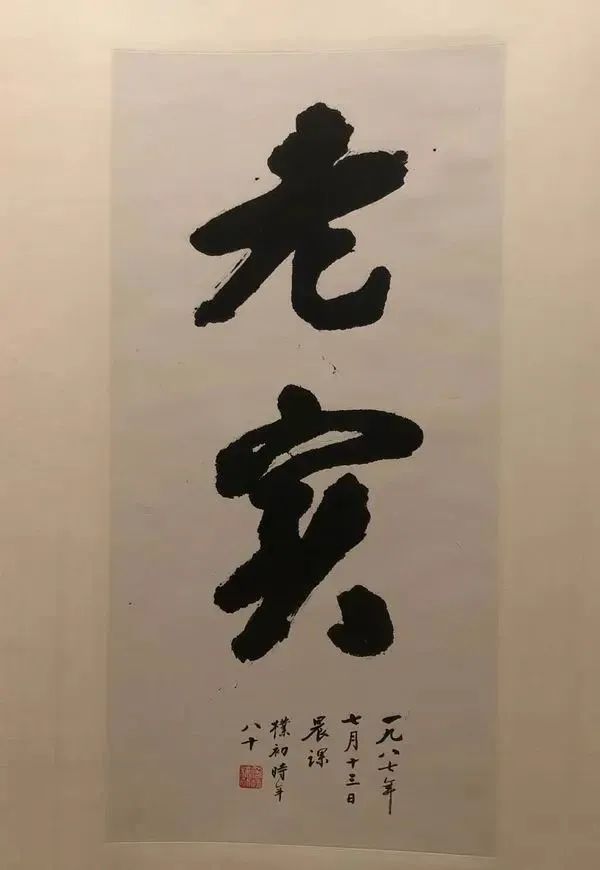 老实
一九八七年
七月十三日
晨课
朴初时年
八十